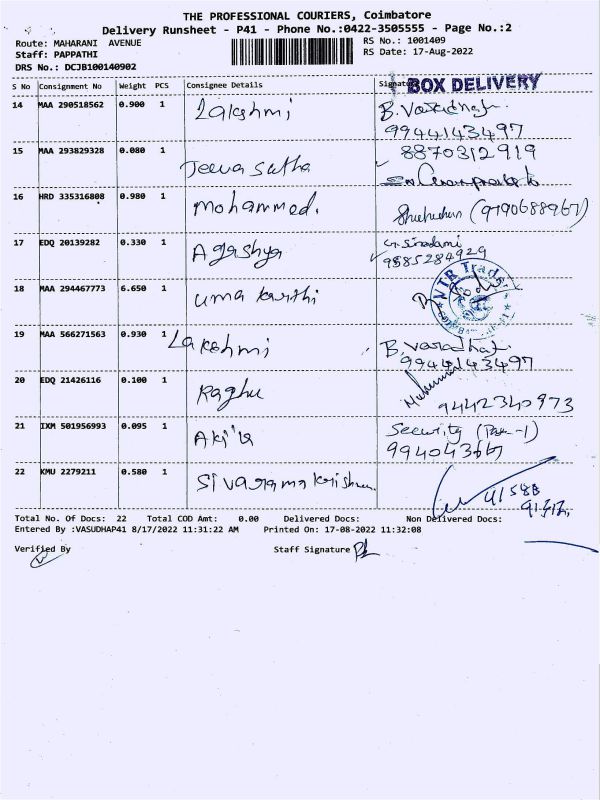 THE PROFESSIONAL COURIERS, Coimbatore
Delivery Runsheet - P41 - Phone No.:0422-3505555 - Page No.:2
Route: MAHARANI AVENUE
RS No.: 1001409
Staff: PAPPATHI
RS Date: 17-Aug-2022
DRS No.: DCJB100140902
S No Consignment No Weight PCS Consignee Details Signature
BOX DELIVERY
14 MAA 290518562 0.900 1 Lakshmi B. Varadhaj
9944143497
15 MAA 293829328 0.080 1 Jeeva sutha 8870312919
16 HRD 335316808 0.980 1 Mohammed. (9190688967)
17 EDQ 20139282 0.330 1 Agashya
9585284929
18 MAA 294467773 6.650 1 uma kirthi
VTR Traders
19 MAA 566271563 0.930 1 Lakshmi B. Varadhaj
9944143497
20 EDQ 21426116 0.100 1 Raghu
9442340973
21 IXM 501956993 0.095 1 Akila Security
22 KMU 2279211 0.580 1 Sivaramakrishnan
Total No. Of Docs: 22 Total COD Amt: 0.00 Delivered Docs: Non Delivered Docs:
Entered By :VASUDHAP41 8/17/2022 11:31:22 AM Printed On: 17-08-2022 11:32:08
Verified By Staff Signature